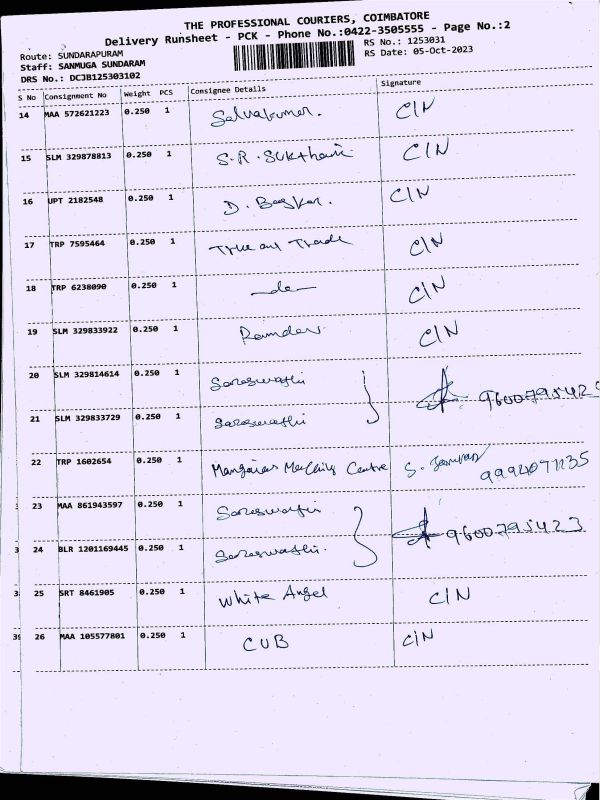 THE PROFESSIONAL COURIERS, COIMBATORE
Delivery Runsheet - PCK - Phone No.:0422-3505555 - Page No.:2
Route: SUNDARAPURAM
RS No.: 1253031
Staff: SANMUGA SUNDARAM
RS Date: 05-Oct-2023
DRS No.: DCJB125303102
S No Consignment No Weight PCS Consignee Details Signature
14 MAA 572621223 0.250 1 Selvakumar. C/N
15 SLM 329878813 0.250 1 S.R. C/N
16 UPT 2182548 0.250 1 D. Baskar. C/N
17 TRP 7595464 0.250 1 Trade C/N
18 TRP 6238090 0.250 1 —do— C/N
19 SLM 329833922 0.250 1 Ramdev C/N
20 SLM 329814614 0.250 1 Saraswathi
9600795423
21 SLM 329833729 0.250 1 Saraswathi
22 TRP 1602654 0.250 1 Centre S.
23 MAA 861943597 0.250 1 Saraswathi
9600795423
24 BLR 1201169445 0.250 1 Saraswathi.
25 SRT 8461905 0.250 1 White Angel C/N
26 MAA 105577801 0.250 1 CUB C/N